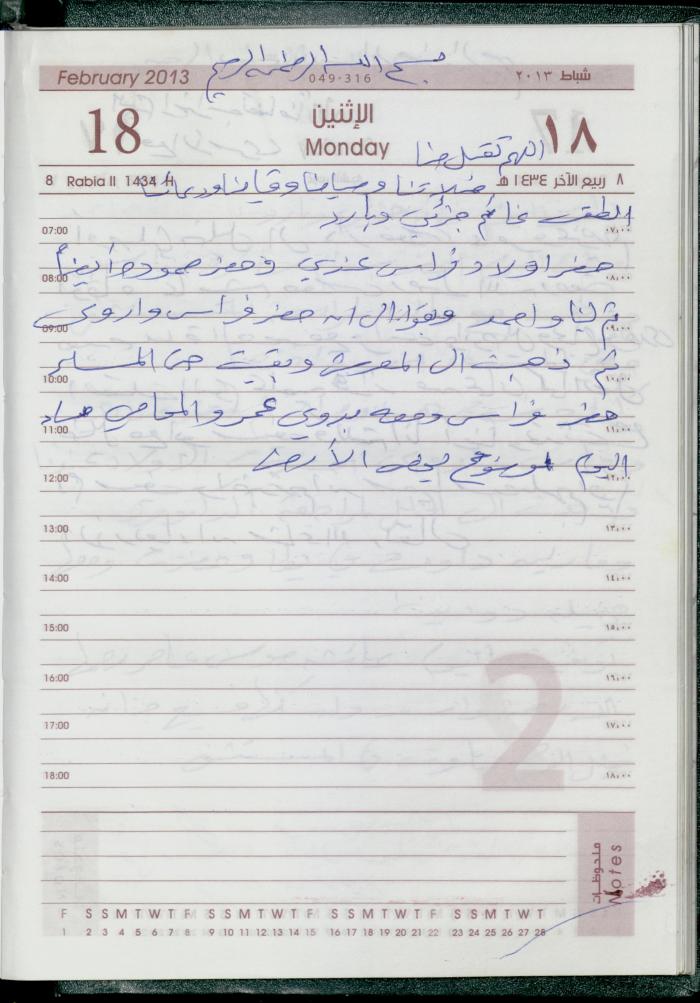 بسم الله الرحمن الرحيم
February 2013 049-316 شباط ٢٠١٣
18 الإثنين Monday ١٨
اللهم تقبل منا
8 Rabia II 1434 H ٨ ربيع الآخر ١٤٣٤ هـ
صلاتنا وصيامنا وقيامنا ودعائنا
الطقس غائم جزئي وبارد
07:00 ٠٧,٠٠
حضر اولاد فراس عندي وحضر حموده أيضاً
08:00 ٠٨,٠٠
ثم لينا واحمد وبقوا الى ان حضر فراس واروى
09:00 ٠٩,٠٠
ثم ذهبت الى وبقيت حتى
10:00 ١٠,٠٠
حضر فراس ومعه بدوي عمر والمحامي مساء
11:00 ١١,٠٠
اليوم موضوع الأرض
12:00 ١٢,٠٠
13:00 ١٣,٠٠
14:00 ١٤,٠٠
15:00 ١٥,٠٠
16:00 ١٦,٠٠
17:00 ١٧,٠٠
18:00 ١٨,٠٠
2
ملحوظات Notes
F S S M T W T F S S M T W T F S S M T W T F S S M T W T
1 2 3 4 5 6 7 8 9 10 11 12 13 14 15 16 17 18 19 20 21 22 23 24 25 26 27 28